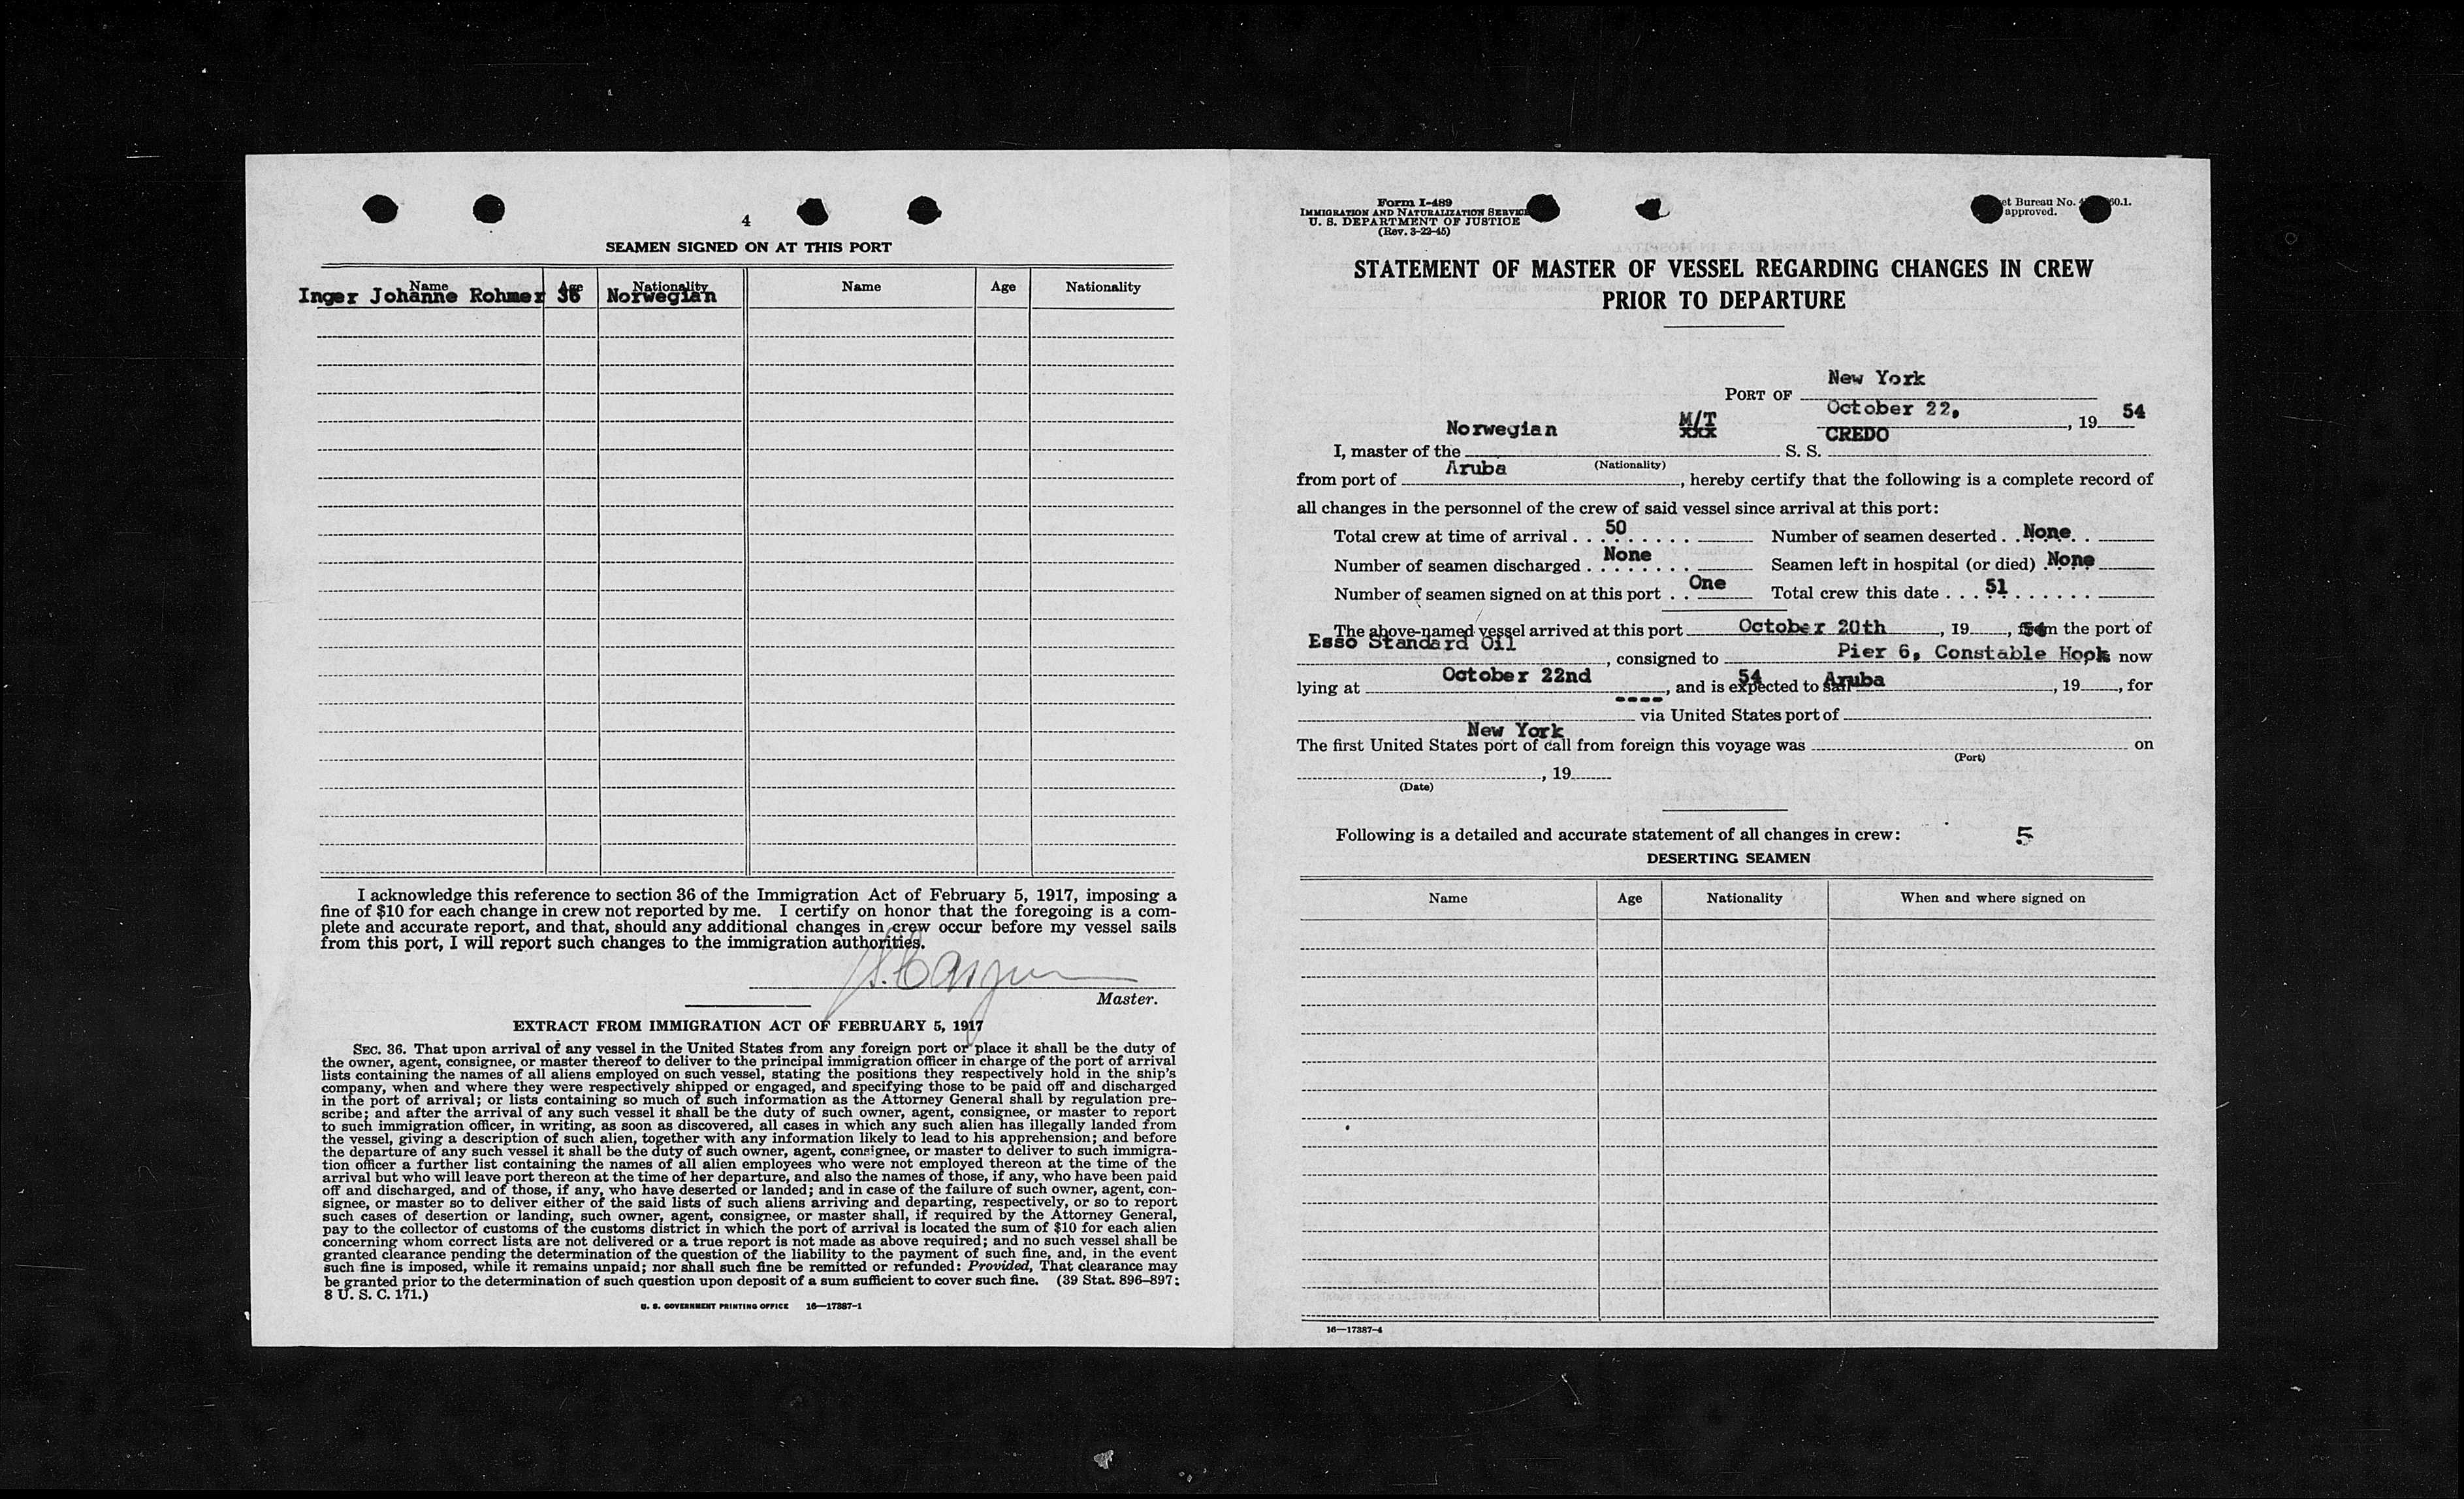 4
SEAMEN SIGNED ON AT THIS PORT
Name Age Nationality Name Age Nationality
Inger Johanne Rohmer 36 Norwegian
I acknowledge this reference to section 36 of the Immigration Act of February 5, 1917, imposing a
fine of $10 for each change in crew not reported by me. I certify on honor that the foregoing is a com-
plete and accurate report, and that, should any additional changes in crew occur before my vessel sails
from this port, I will report such changes to the immigration authorities.
Master.
EXTRACT FROM IMMIGRATION ACT OF FEBRUARY 5, 1917
SEC. 36. That upon arrival of any vessel in the United States from any foreign port or place it shall be the duty of
the owner, agent, consignee, or master thereof to deliver to the principal immigration officer in charge of the port of arrival
lists containing the names of all aliens employed on such vessel, stating the positions they respectively hold in the ship's
company, when and where they were respectively shipped or engaged, and specifying those to be paid off and discharged
in the port of arrival; or lists containing so much of such information as the Attorney General shall by regulation pre-
scribe; and after the arrival of any such vessel it shall be the duty of such owner, agent, consignee, or master to report
to such immigration officer, in writing, as soon as discovered, all cases in which any such alien has illegally landed from
the vessel, giving a description of such alien, together with any information likely to lead to his apprehension; and before
the departure of any such vessel it shall be the duty of such owner, agent, consignee, or master to deliver to such immigra-
tion officer a further list containing the names of all alien employees who were not employed thereon at the time of the
arrival but who will leave port thereon at the time of her departure, and also the names of those, if any, who have been paid
off and discharged, and of those, if any, who have deserted or landed; and in case of the failure of such owner, agent, con-
signee, or master so to deliver either of the said lists of such aliens arriving and departing, respectively, or so to report
such cases of desertion or landing, such owner, agent, consignee, or master shall, if required by the Attorney General,
pay to the collector of customs of the customs district in which the port of arrival is located the sum of $10 for each alien
concerning whom correct lists are not delivered or a true report is not made as above required; and no such vessel shall be
granted clearance pending the determination of the question of the liability to the payment of such fine, and, in the event
such fine is imposed, while it remains unpaid; nor shall such fine be remitted or refunded: Provided, That clearance may
be granted prior to the determination of such question upon deposit of a sum sufficient to cover such fine. (39 Stat. 896–897;
8 U. S. C. 171.)
U. S. GOVERNMENT PRINTING OFFICE 16—17387-1
Form I-489
IMMIGRATION AND NATURALIZATION SERVICE
U. S. DEPARTMENT OF JUSTICE
(Rev. 3-22-45)
Bureau No.
approved.
STATEMENT OF MASTER OF VESSEL REGARDING CHANGES IN CREW
PRIOR TO DEPARTURE
New York
PORT OF
October 22, 54
, 19
Norwegian M/T CREDO
xxx
I, master of the S. S.
Aruba (Nationality)
from port of , hereby certify that the following is a complete record of
all changes in the personnel of the crew of said vessel since arrival at this port:
Total crew at time of arrival 50 Number of seamen deserted None
Number of seamen discharged None Seamen left in hospital (or died) None
Number of seamen signed on at this port One Total crew this date 51
The above-named vessel arrived at this port October 20th, 19 54, from the port of
Esso Standard Oil Pier 6, Constable Hook
, consigned to now
October 22nd 54 Aruba
lying at , and is expected to sail , 19 , for
----
via United States port of
New York
The first United States port of call from foreign this voyage was on
(Port)
, 19
(Date)
Following is a detailed and accurate statement of all changes in crew: 5
DESERTING SEAMEN
Name Age Nationality When and where signed on
16—17387-4